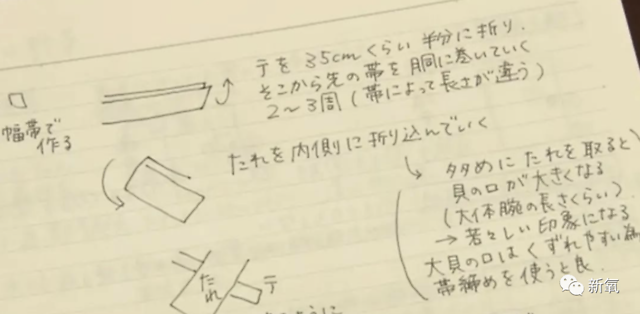 テを35cmくらい半分に折り、
そこから先の帯を胴に巻いていく
2〜3周(帯によって長さが違う)
幅帯で
作る
たれを内側に折り込んでいく
多めにたれを取ると
貝の口が大きくなる
(大体腕の長さくらい)
→若々しい印象になる
大貝の口はくずれやすい為
帯締めを使うと良
たれ
テ
ように
新氧